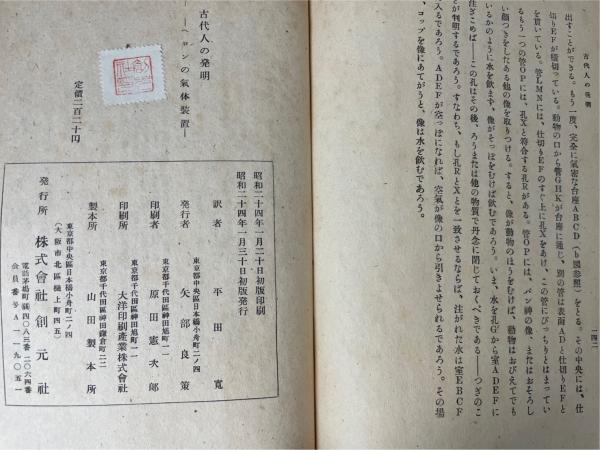 古代人の発明
一四二
出すことができる。もう一度、完全に氣密な台座ABCD(り圖参照)をとる。その中央には、仕
切りEFが橫切っている。動物の口から管GHKが台座に通じ、別の管は表面ADと仕切りEFと
を貫いている。管LMNには、仕切りEFのすぐ上に孔Xをあけ、この管にぴっちりとはまってい
るもう一つの管OPには、孔Xと符合する孔Rがある。管OPには、パン神の像、またはおそろし
い顔つきをしたある他の像を取りつける。すると、像が動物のほうをむけば、動物はおびえてでも
いるかのように水を飲まず、像がそっぽをむけば飲むであろう。いま、水を孔Gから室ADEFに
注ぎこめば——この孔はその後、ろうまたは他の物質で丹念に閉じておくべきである——つぎのこ
とが判明するであろう。すなわち、もし孔RとXとを一致させるならば、注がれた水は室EBCF
に入るであろう。ADEFが空っぽになれば、空氣が像の口から引きよせられるであろう。その場
、コップを像にあてがうと、像は水を飲むであろう。
古代人の発明
—ヘロンの氣体裝置—
定價二百二十円
昭和二十四年一月二十日初版印刷
昭和二十四年一月三十日初版発行
訳者 平田寬
東京都中央區日本橋小舟町二ノ四
発行者 矢部良策
東京都千代田區神田旭町一一
印刷者 原田憲次郎
東京都千代田區神田旭町一一
印刷所 大洋印刷産業株式會社
東京都千代田區神田鎌倉町二二
製本所 山田製本所
東京都中央區日本橋小舟町二ノ四
(大阪市北區樋上町四五)
発行所 株式會社創元社
電話茅場町〇四八三番・二〇六四番
会員番号A一一九〇五一